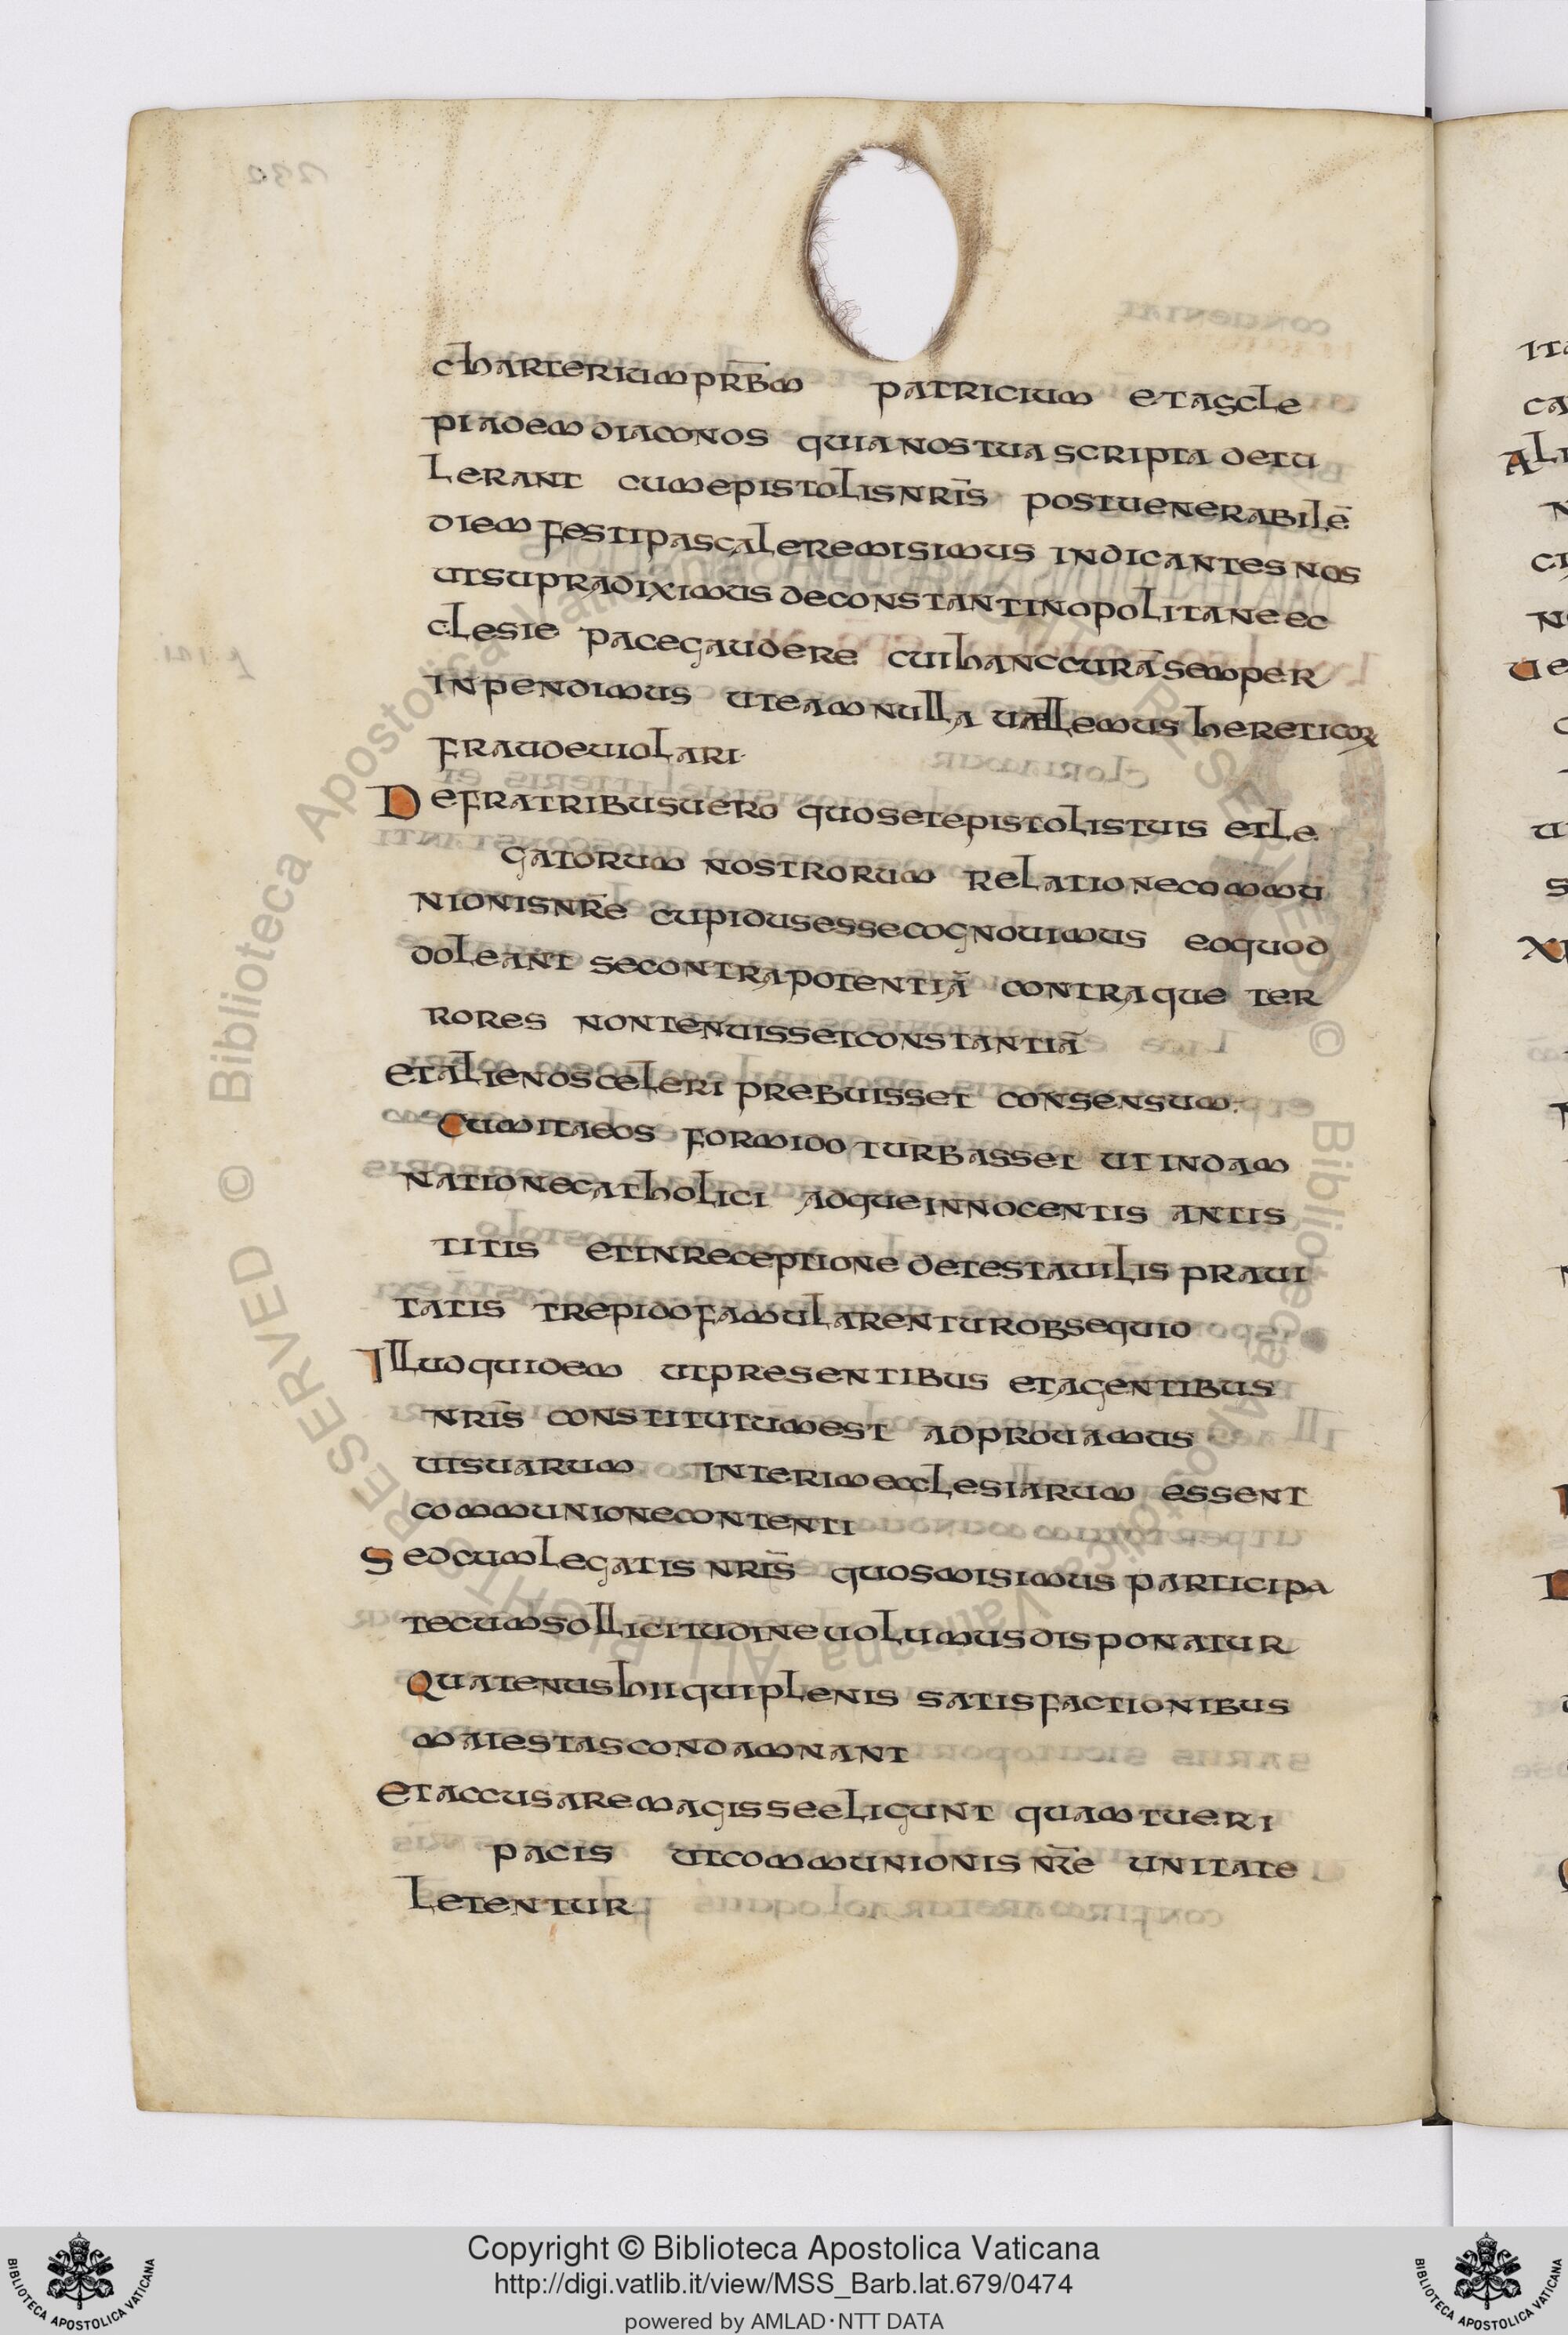 charterium prb̄m patricium et ascle
piadem diaconos quia nos tua scripta detu
lerant cum epistolis nrīs post venerabilē
diem festi pascale remisimus indicantes nos
ut supra diximus de constantinopolitane ec
clesie pace gaudere cui hanc curā semper
inpendimus ut eam nulla uallemus hereticoꝝ
fraude uiolari·
De fratribus uero quos et epistolis tuis et le
gatorum nostrorum relatione commu
nionis nr̄e cupidus esse cognouimus eo quod
doleant se contra potentiā contraque ter
rores non tenuisset constantiā
et alieno sceleri prebuisset consensum·
Cum ita eos formido turbasset ut in dam
natione catholici adque innocentis antis
titis et in receptione detestauilis praui
tatis trepido famularentur obsequio
Illud quidem ut presentibus et agentibus
nrīs constitutum est adprouamus
ut suarum interim ecclesiarum essent
communione contenti
Sed cum legatis nrīs quos misimus participa
tecum sollicitudine uolumus disponatur
Quatenus hii qui plenis satisfactionibus
maiestas condamnant
Et accusare magis se eligunt quam tueri
pacis ut communionis nr̄e unitate
letentur
Copyright © Biblioteca Apostolica Vaticana
http://digi.vatlib.it/view/MSS_Barb.lat.679/0474
powered by AMLAD·NTT DATA
BIBLIOTECA APOSTOLICA VATICANA
BIBLIOTECA APOSTOLICA VATICANA